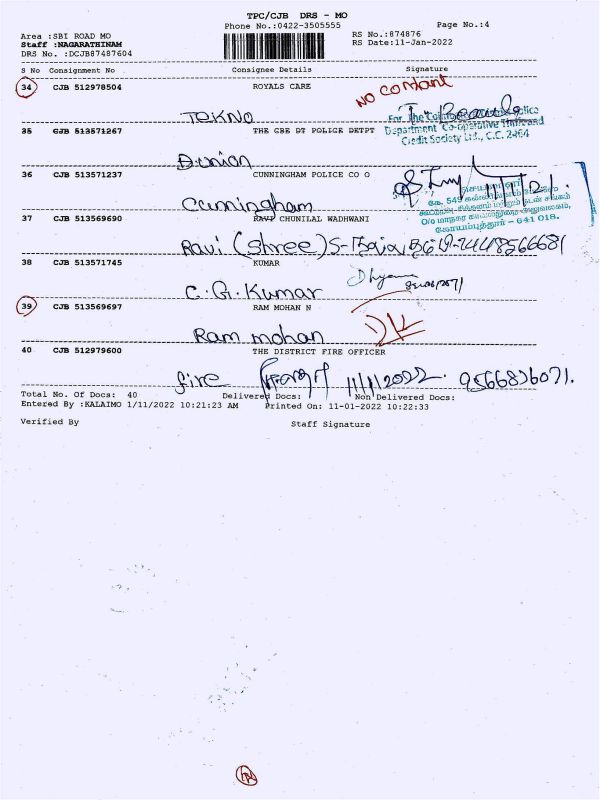 TPC/CJB DRS - MO
Phone No.:0422-3505555 Page No.:4
Area :SBI ROAD MO RS No.:874876
Staff :NAGARATHINAM RS Date:11-Jan-2022
DRS No. :DCJB87487604
S No Consignment No Consignee Details Signature
34 CJB 512978504 ROYALS CARE NO Contant
TEKNO
35 CJB 513571267 THE CBE DT POLICE DETPT
For The Coimbatore Police
Department Co-operative Thrift and
Credit Society Ltd., C.C. 2464
Dunion
36 CJB 513571237 CUNNINGHAM POLICE CO O
Cunningham
37 CJB 513569690 RAVI CHUNILAL WADHWANI
கோயம்புத்தூர் - 641 018.
Ravi (Shree)
38 CJB 513571745 KUMAR
C.G.Kumar
39 CJB 513569697 RAM MOHAN N
Ram mohan DK
40 CJB 512979600 THE DISTRICT FIRE OFFICER
fire 11/1/2022. 9566826071.
Total No. Of Docs: 40 Delivered Docs: Non Delivered Docs:
Entered By :KALAIMO 1/11/2022 10:21:23 AM Printed On: 11-01-2022 10:22:33
Verified By Staff Signature